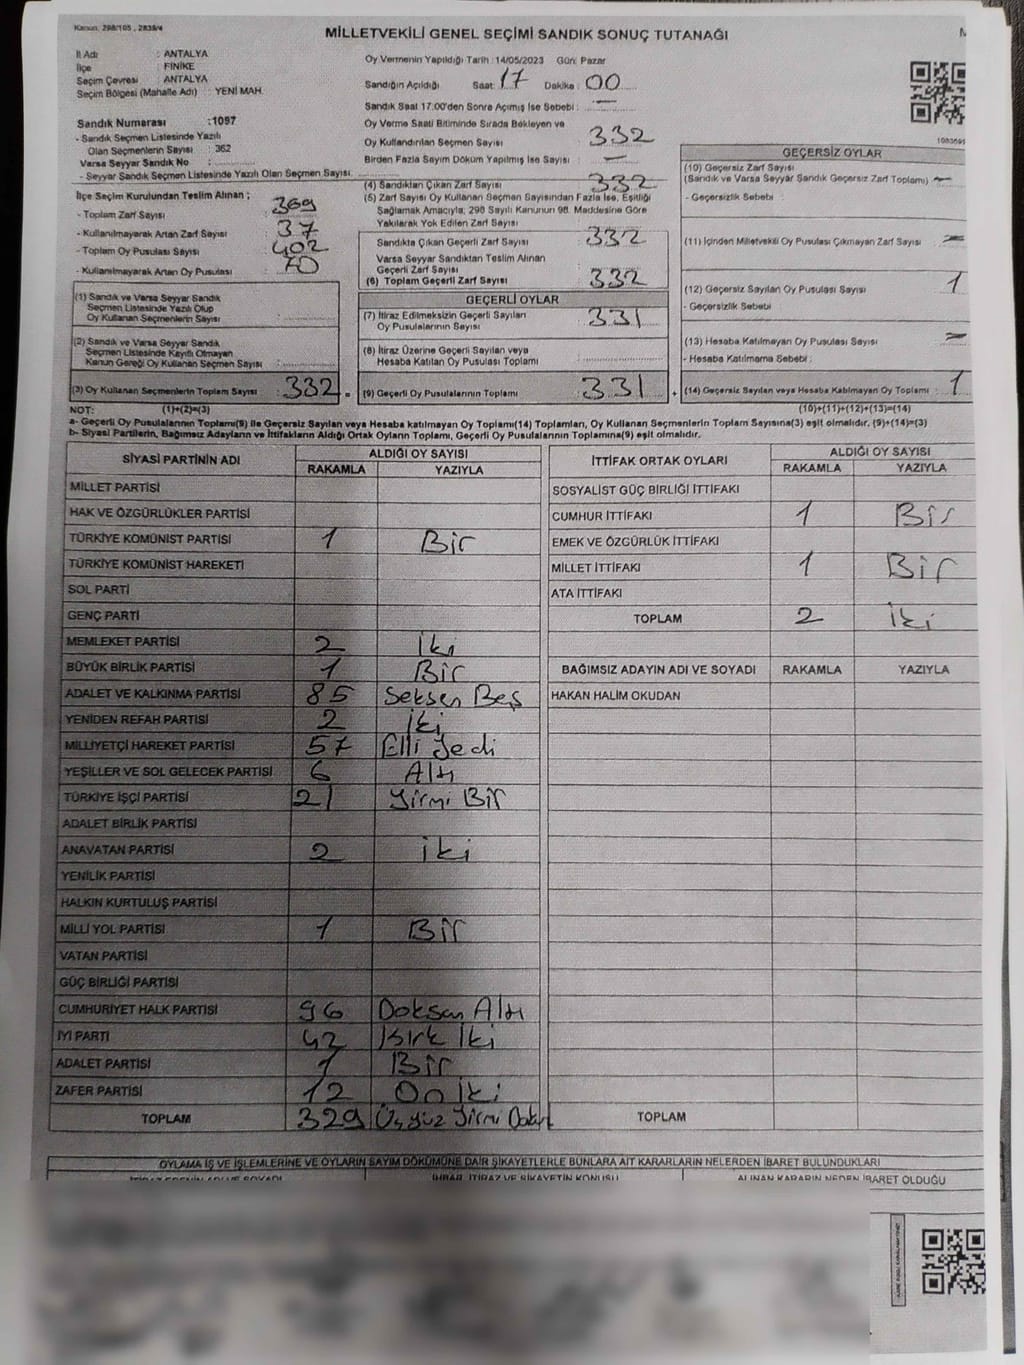 Kanun: 298/105 , 2839/4
MİLLETVEKİLİ GENEL SEÇİMİ SANDIK SONUÇ TUTANAĞI
İl Adı : ANTALYA
İlçe : FİNİKE
Seçim Çevresi : ANTALYA
Seçim Bölgesi (Mahalle Adı) : YENİ MAH.
Sandık Numarası :1097
- Sandık Seçmen Listesinde Yazılı
Olan Seçmenlerin Sayısı : 362
Varsa Seyyar Sandık No :
- Seyyar Sandık Seçmen Listesinde Yazılı Olan Seçmen Sayısı.
Oy Vermenin Yapıldığı Tarih : 14/05/2023 Gün: Pazar
Sandığın Açıldığı Saat: 17 Dakika : 00
Sandık Saat 17:00'den Sonra Açımış İse Sebebi : —
Oy Verme Saati Bitiminde Sırada Bekleyen ve
Oy Kullandırılan Seçmen Sayısı 332
Birden Fazla Sayım Döküm Yapılmış İse Sayısı : —
İlçe Seçim Kurulundan Teslim Alınan ;
- Toplam Zarf Sayısı : 369
- Kullanılmayarak Artan Zarf Sayısı : 37
- Toplam Oy Pusulası Sayısı : 402
- Kullanılmayarak Artan Oy Pusulası : 70
(1) Sandık ve Varsa Seyyar Sandık
Seçmen Listesinde Yazılı Olup
Oy Kullanan Seçmenlerin Sayısı :
(2) Sandık ve Varsa Seyyar Sandık
Seçmen Listesinde Kayıtlı Olmayan
Kanun Gereği Oy Kullanan Seçmen Sayısı :
(3) Oy Kullanan Seçmenlerin Toplam Sayısı : 332 =
(4) Sandıktan Çıkan Zarf Sayısı 332
(5) Zarf Sayısı Oy Kullanan Seçmen Sayısından Fazla İse, Eşitliği
Sağlamak Amacıyla; 298 Sayılı Kanunun 98. Maddesine Göre
Yakılarak Yok Edilen Zarf Sayısı
Sandıkta Çıkan Geçerli Zarf Sayısı 332
Varsa Seyyar Sandıktan Teslim Alınan
Geçerli Zarf Sayısı
(6) Toplam Geçerli Zarf Sayısı 332
GEÇERLİ OYLAR
(7) İtiraz Edilmeksizin Geçerli Sayılan
Oy Pusulalarının Sayısı 331
(8) İtiraz Üzerine Geçerli Sayılan veya
Hesaba Katılan Oy Pusulası Toplamı
(9) Geçerli Oy Pusulalarının Toplamı 331 +
GEÇERSİZ OYLAR
(10) Geçersiz Zarf Sayısı
(Sandık ve Varsa Seyyar Sandık Geçersiz Zarf Toplamı) —
- Geçersizlik Sebebi :
(11) İçinden Milletvekili Oy Pusulası Çıkmayan Zarf Sayısı —
(12) Geçersiz Sayılan Oy Pusulası Sayısı : 1
- Geçersizlik Sebebi
(13) Hesaba Katılmayan Oy Pusulası Sayısı : —
- Hesaba Katılmama Sebebi :
(14) Geçersiz Sayılan veya Hesaba Katılmayan Oy Toplamı : 1
NOT: (1)+(2)=(3) (10)+(11)+(12)+(13)=(14)
a- Geçerli Oy Pusulalarının Toplamı(9) ile Geçersiz Sayılan veya Hesaba katılmayan Oy Toplamı(14) Toplamları, Oy Kullanan Seçmenlerin Toplam Sayısına(3) eşit olmalıdır. (9)+(14)=(3)
b- Siyasi Partilerin, Bağımsız Adayların ve İttifakların Aldığı Ortak Oyların Toplamı, Geçerli Oy Pusulalarının Toplamına(9) eşit olmalıdır.
SİYASİ PARTİNİN ADI ALDIĞI OY SAYISI
RAKAMLA YAZIYLA
MİLLET PARTİSİ
HAK VE ÖZGÜRLÜKLER PARTİSİ
TÜRKİYE KOMÜNİST PARTİSİ 1 Bir
TÜRKİYE KOMÜNİST HAREKETİ
SOL PARTİ
GENÇ PARTİ
MEMLEKET PARTİSİ 2 İki
BÜYÜK BİRLİK PARTİSİ 1 Bir
ADALET VE KALKINMA PARTİSİ 85 Seksen Beş
YENİDEN REFAH PARTİSİ 2 İki
MİLLİYETÇİ HAREKET PARTİSİ 57 Elli Yedi
YEŞİLLER VE SOL GELECEK PARTİSİ 6 Altı
TÜRKİYE İŞÇİ PARTİSİ 21 Yirmi Bir
ADALET BİRLİK PARTİSİ
ANAVATAN PARTİSİ 2 iki
YENİLİK PARTİSİ
HALKIN KURTULUŞ PARTİSİ
MİLLİ YOL PARTİSİ 1 Bir
VATAN PARTİSİ
GÜÇ BİRLİĞİ PARTİSİ
CUMHURİYET HALK PARTİSİ 96 Doksan Altı
İYİ PARTİ 42 Kırk İki
ADALET PARTİSİ 1 Bir
ZAFER PARTİSİ 12 On İki
TOPLAM 329 Üçyüz Yirmi Dokuz
İTTİFAK ORTAK OYLARI ALDIĞI OY SAYISI
RAKAMLA YAZIYLA
SOSYALİST GÜÇ BİRLİĞİ İTTİFAKI
CUMHUR İTTİFAKI 1 Bir
EMEK VE ÖZGÜRLÜK İTTİFAKI
MİLLET İTTİFAKI 1 Bir
ATA İTTİFAKI
TOPLAM 2 İki
BAĞIMSIZ ADAYIN ADI VE SOYADI RAKAMLA YAZIYLA
HAKAN HALİM OKUDAN
TOPLAM
OYLAMA İŞ VE İŞLEMLERİNE VE OYLARIN SAYIM DÖKÜMÜNE DAİR ŞİKAYETLERLE BUNLARA AİT KARARLARIN NELERDEN İBARET BULUNDUKLARI
İHBAR, İTİRAZ VE ŞİKAYETİN KONUSU ALINAN KARARIN NEDEN İBARET OLDUĞU